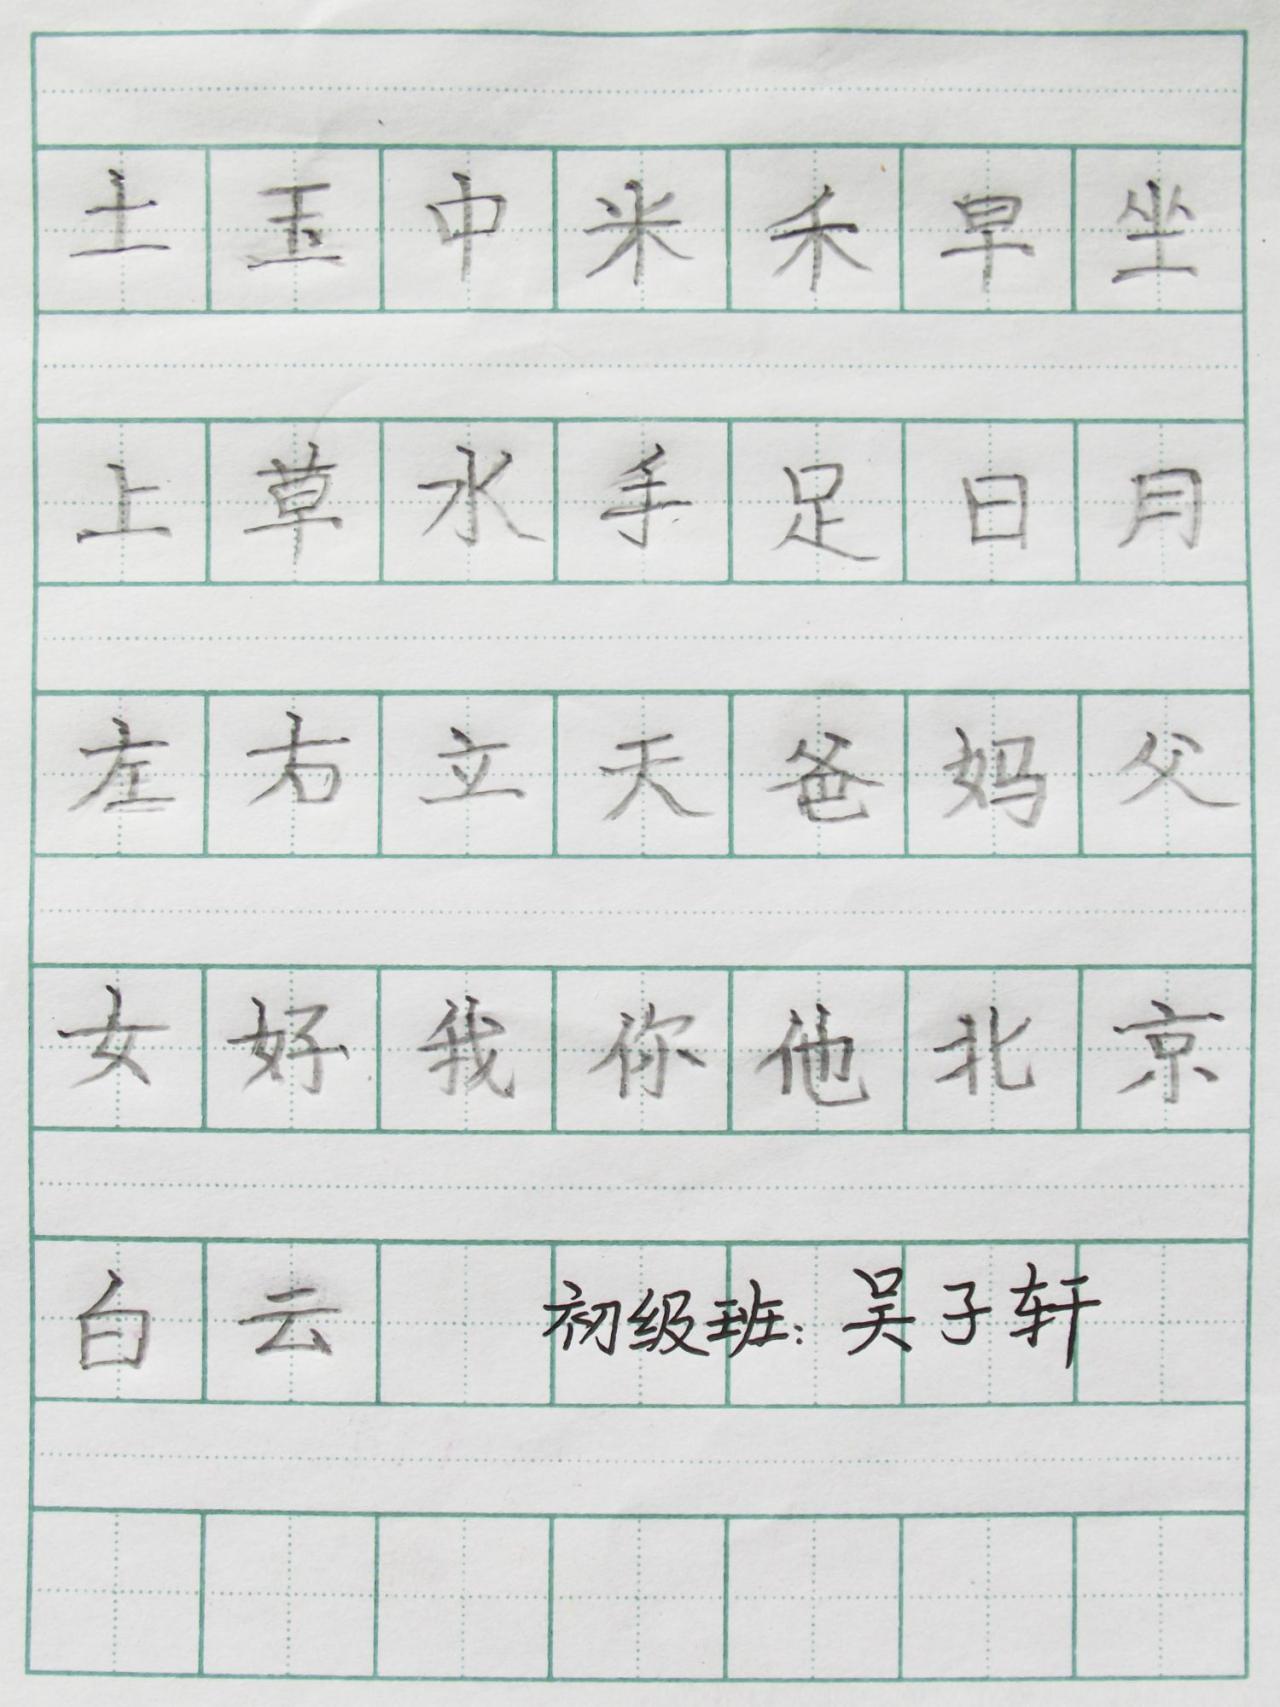 土玉中米禾早坐
上草水手足日月
左右立天爸妈父
女好我你他北京
白云 初级班:吴子轩